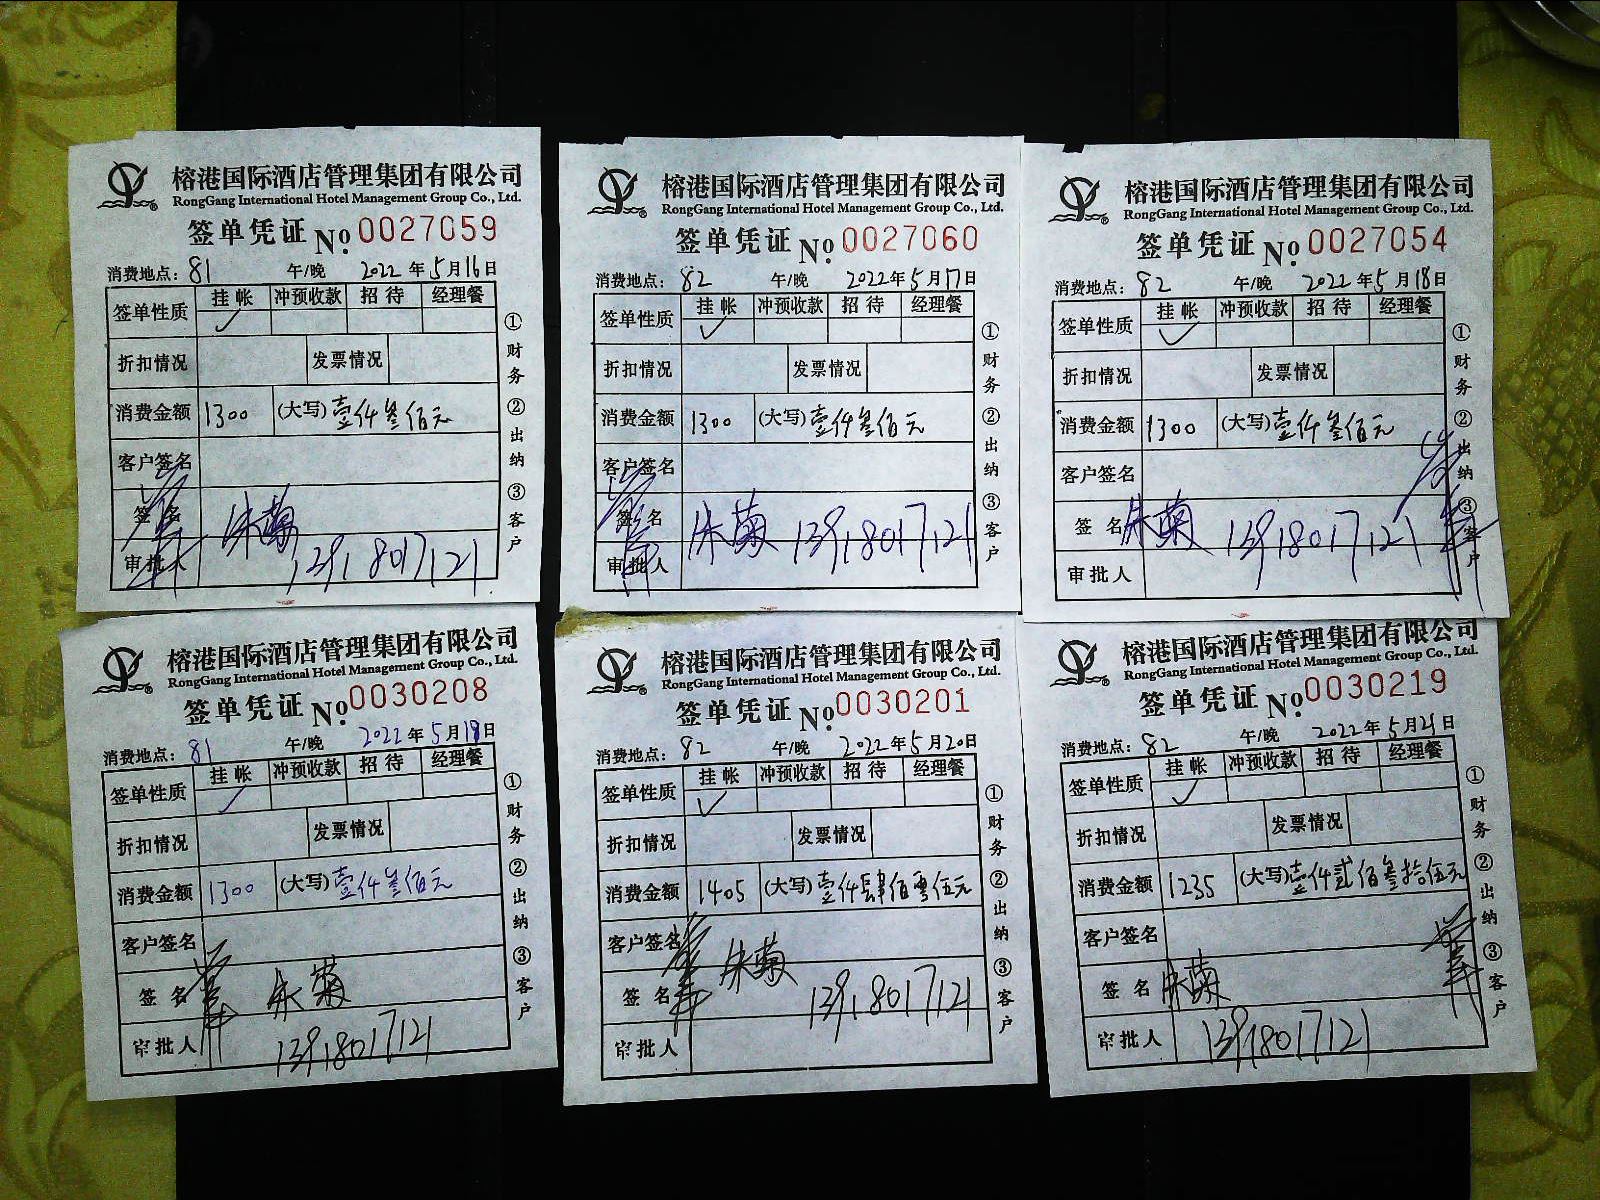 榕港国际酒店管理集团有限公司
RongGang International Hotel Management Group Co., Ltd.
签单凭证 No. 0027059
消费地点: 81 午/晚 2022年5月16日
签单性质 挂帐 冲预收款 招待 经理餐
✓
折扣情况 发票情况
消费金额 1300 (大写)壹仟叁佰元
客户签名
签名 朱菊
审批人 13918017121
①财务 ②出纳 ③客户
榕港国际酒店管理集团有限公司
RongGang International Hotel Management Group Co., Ltd.
签单凭证 No. 0027060
消费地点: 82 午/晚 2022年5月17日
签单性质 挂帐 冲预收款 招待 经理餐
✓
折扣情况 发票情况
消费金额 1300 (大写)壹仟叁佰元
客户签名
签名 朱菊 13918017121
审批人
①财务 ②出纳 ③客户
榕港国际酒店管理集团有限公司
RongGang International Hotel Management Group Co., Ltd.
签单凭证 No. 0027054
消费地点: 82 午/晚 2022年5月18日
签单性质 挂帐 冲预收款 招待 经理餐
✓
折扣情况 发票情况
消费金额 1300 (大写)壹仟叁佰元
客户签名
签名 朱菊 13918017121
审批人
①财务 ②出纳 ③客户
榕港国际酒店管理集团有限公司
RongGang International Hotel Management Group Co., Ltd.
签单凭证 No. 0030208
消费地点: 81 午/晚 2022年5月19日
签单性质 挂帐 冲预收款 招待 经理餐
✓
折扣情况 发票情况
消费金额 1300 (大写)壹仟叁佰元
客户签名
签名 朱菊
审批人 13918017121
①财务 ②出纳 ③客户
榕港国际酒店管理集团有限公司
RongGang International Hotel Management Group Co., Ltd.
签单凭证 No. 0030201
消费地点: 82 午/晚 2022年5月20日
签单性质 挂帐 冲预收款 招待 经理餐
✓
折扣情况 发票情况
消费金额 1405 (大写)壹仟肆佰零伍元
客户签名 朱菊
签名 13918017121
审批人
①财务 ②出纳 ③客户
榕港国际酒店管理集团有限公司
RongGang International Hotel Management Group Co., Ltd.
签单凭证 No. 0030219
消费地点: 82 午/晚 2022年5月21日
签单性质 挂帐 冲预收款 招待 经理餐
✓
折扣情况 发票情况
消费金额 1235 (大写)壹仟贰佰叁拾伍元
客户签名
签名 朱菊
审批人 13918017121
①财务 ②出纳 ③客户